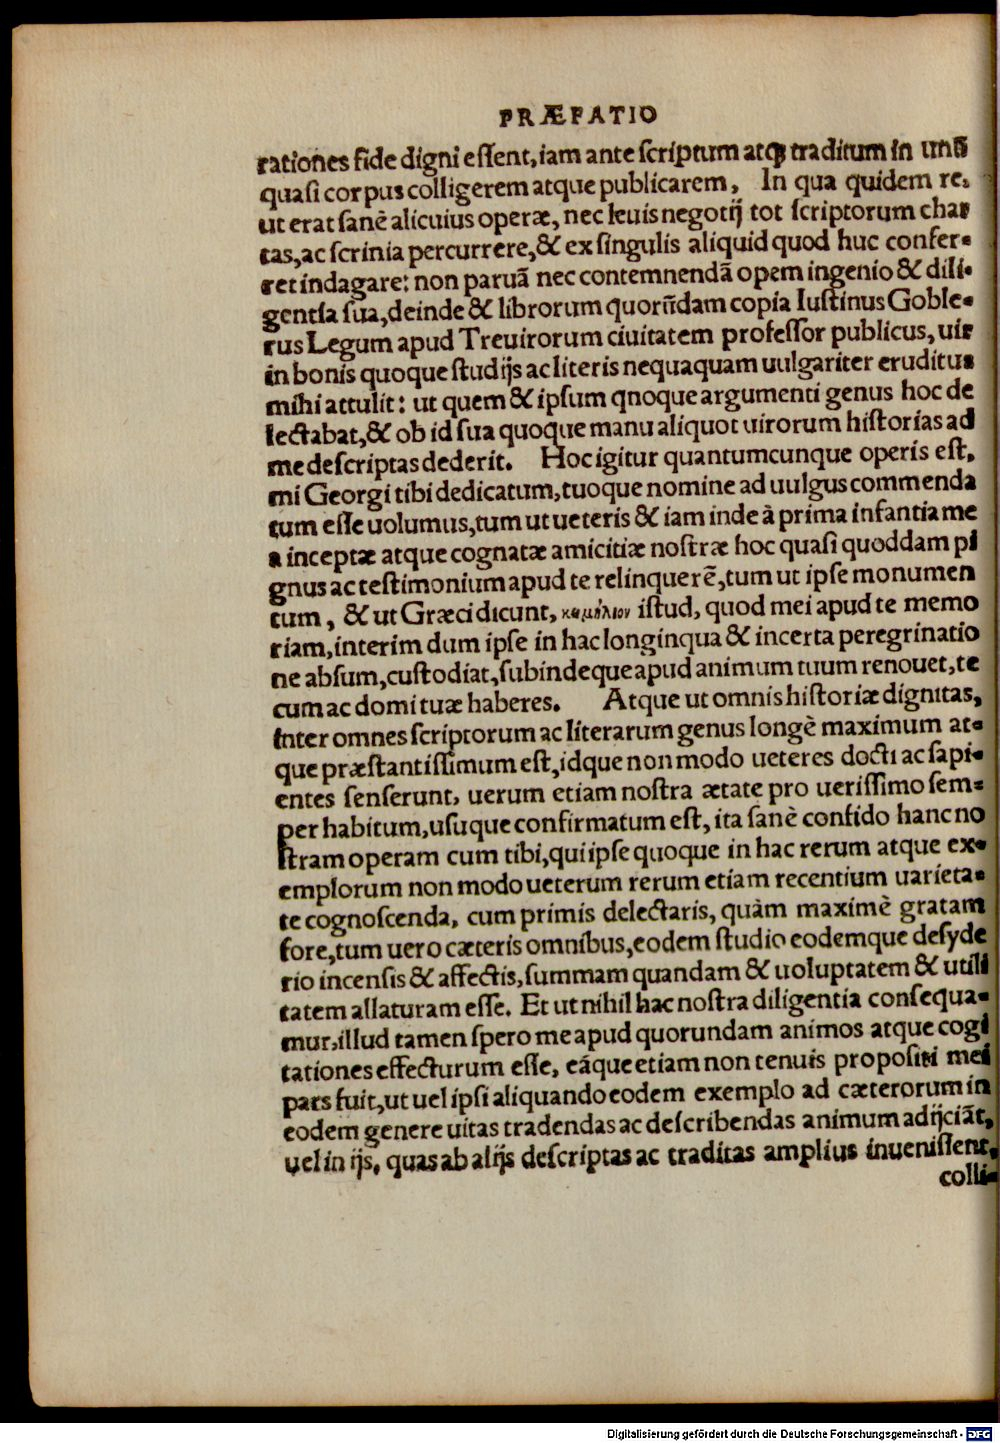 PRÆFATIO
rationes fide digni eſſent, iam ante ſcriptum atꝗ traditum in unũ
quaſi corpus colligerem atque publicarem. In qua quidem re,
ut erat ſanè alicuius operæ, nec leuis negotij tot ſcriptorum char
tas, ac ſcrinia percurrere, & ex ſingulis aliquid quod huc confer-
ret indagare: non paruã nec contemnendã opem ingenio & dili-
gentia ſua, deinde & librorum quorũdam copia Iuſtinus Goble-
rus Legum apud Treuirorum ciuitatem profeſſor publicus, uir
in bonis quoque ſtudijs ac literis nequaquam uulgariter eruditus
mihi attulit: ut quem & ipſum qnoque argumenti genus hoc de
lectabat, & ob id ſua quoque manu aliquot uirorum hiſtorias ad
me deſcriptas dederit. Hoc igitur quantumcunque operis eſt,
mi Georgi tibi dedicatum, tuoque nomine ad uulgus commenda
tum eſſe uolumus, tum ut ueteris & iam inde à prima infantia me
a inceptæ atque cognatæ amicitiæ noſtræ hoc quaſi quoddam pi
gnus ac teſtimonium apud te relinquerẽ, tum ut ipſe monumen
tum, & ut Græci dicunt, κειμήλιον iſtud, quod mei apud te memo
riam, interim dum ipſe in hac longinqua & incerta peregrinatio
ne abſum, cuſtodiat, ſubindeque apud animum tuum renouet, te
cum ac domi tuæ haberes. Atque ut omnis hiſtoriæ dignitas,
inter omnes ſcriptorum ac literarum genus longè maximum at-
que præſtantiſſimum eſt, idque non modo ueteres docti ac ſapi-
entes ſenſerunt, uerum etiam noſtra ætate pro ueriſſimo ſem-
per habitum, uſuque confirmatum eſt, ita ſanè confido hanc no
ſtram operam cum tibi, qui ipſe quoque in hac rerum atque ex-
emplorum non modo ueterum rerum etiam recentium uarieta-
te cognoſcenda, cum primis delectaris, quàm maximè gratam
fore, tum uero cæteris omnibus, eodem ſtudio eodemque deſyde
rio incenſis & affectis, ſummam quandam & uoluptatem & utili
tatem allaturam eſſe. Et ut nihil hac noſtra diligentia conſequa-
mur, illud tamen ſpero me apud quorundam animos atque cogi
tationes effecturum eſſe, eãque etiam non tenuis propoſiti mei
pars fuit, ut uel ipſi aliquando eodem exemplo ad cæterorum in
eodem genere uitas tradendas ac deſcribendas animum adijciãt,
uel in ijs, quas ab alijs deſcriptas ac traditas amplius inueniſſent,
colli-
Digitalisierung gefördert durch die Deutsche Forschungsgemeinschaft - DFG